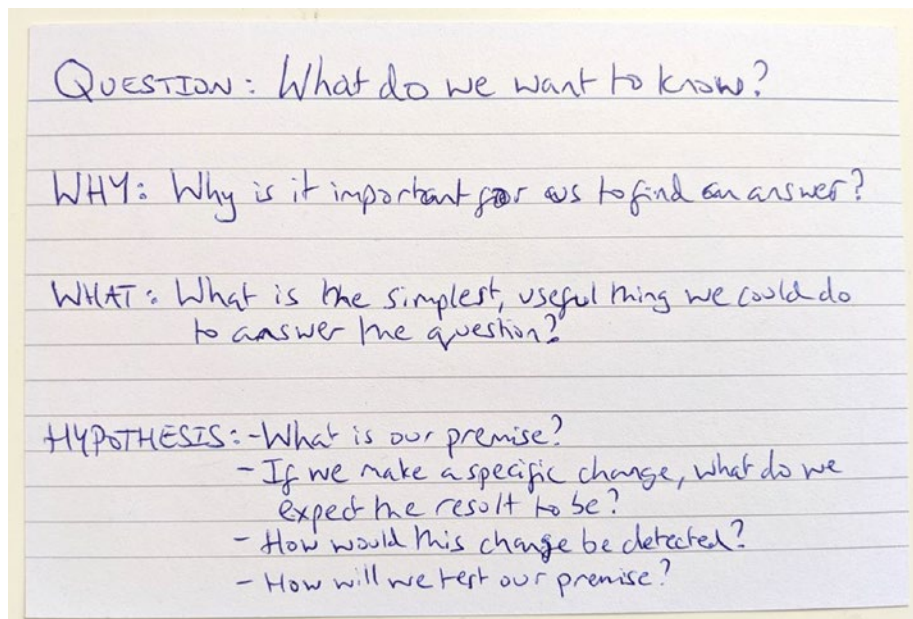 QUESTION: What do we want to know?
WHY: Why is it important for us to find an answer?
WHAT: What is the simplest, useful thing we could do
to answer the question?
HYPOTHESIS: - What is our premise?
- If we make a specific change, what do we
expect the result to be?
- How would this change be detected?
- How will we test our premise?